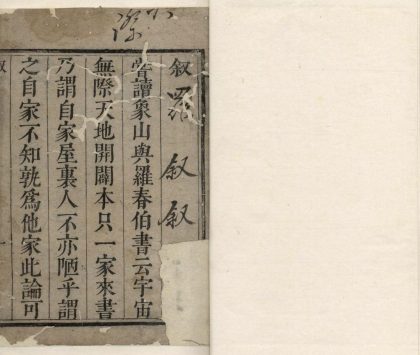 叙 羅 叙 叙
嘗讀象山與羅春伯書云宇宙
無際天地開闢本只一家來書
乃謂自家屋裏人不亦陋乎謂
之自家不知孰為他家此論可
叙
一